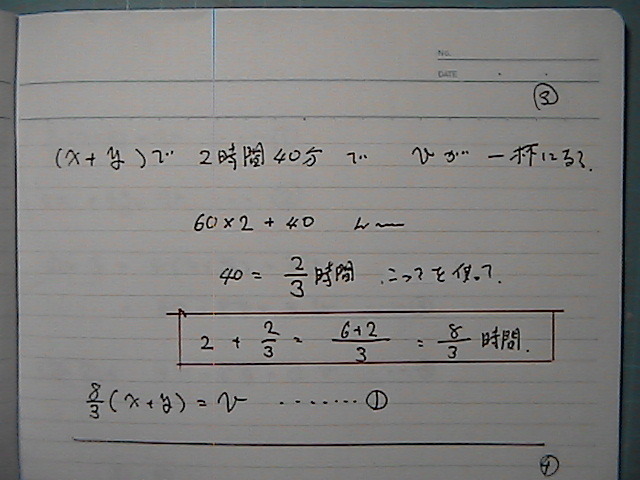 No.
DATE ・ ・
③
(x+y)で 2時間40分で Vが一杯になる。
60×2+40
40 = 2/3 時間 こっちを使って、
2 + 2/3 = 6+2/3 = 8/3 時間.
8/3(x+y) = V ……… ①
④